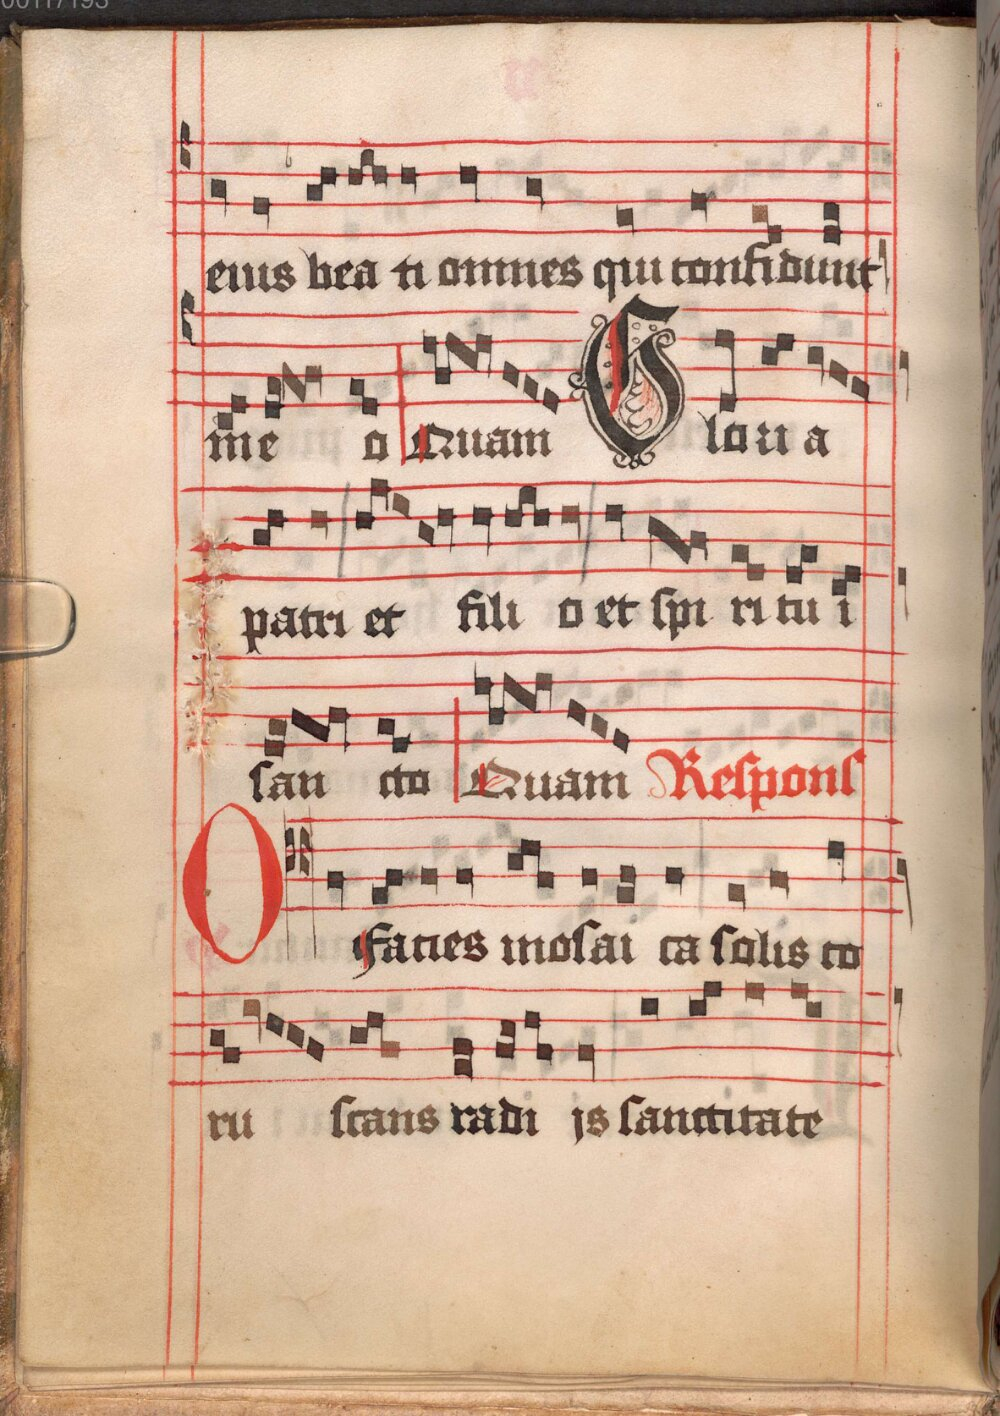 00117193
eius bea ti omnes qui confidunt
in e o Quam Glori a
patri et fili o et spi ri tu i
san cto Quam Respons
O facies mosai ca solis co
ru scans radi js sanctitate